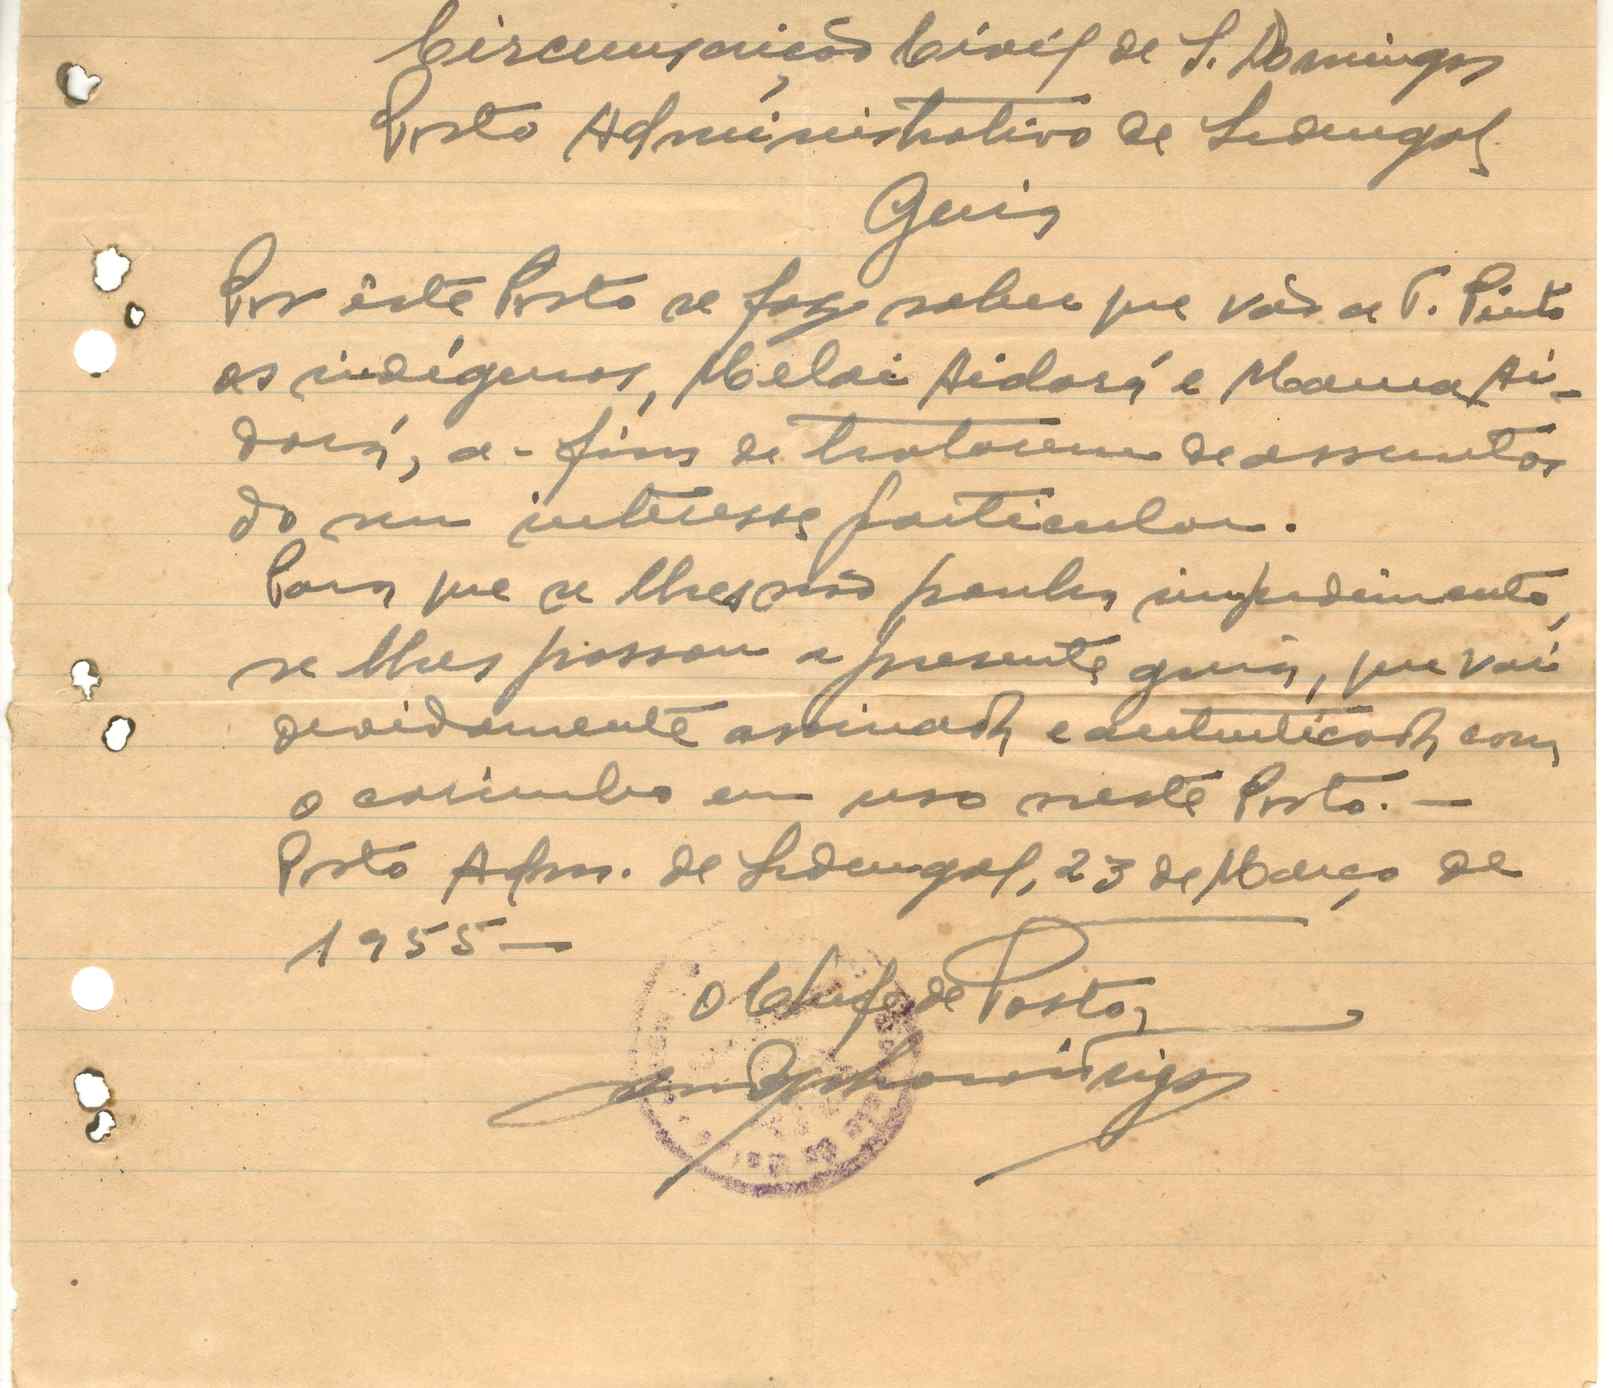 Circunscrição Civil de S. Domingos
Posto Administrativo de Sedengal
Guia
Por êste Posto se faz saber que vão a T. Pinto
os indígenas, Melai Aidará e Mama Ai-
dará, a-fim de tratarem de assuntos
do seu interesse particular.
Para que se lhes não ponha impedimento,
se lhes passou a presente guia, que vai
devidamente assinada e autenticada com
o carimbo em uso neste Posto. —
Posto Adm. de Sedengal, 23 de Março de
1955 —
O Chefe de Posto,